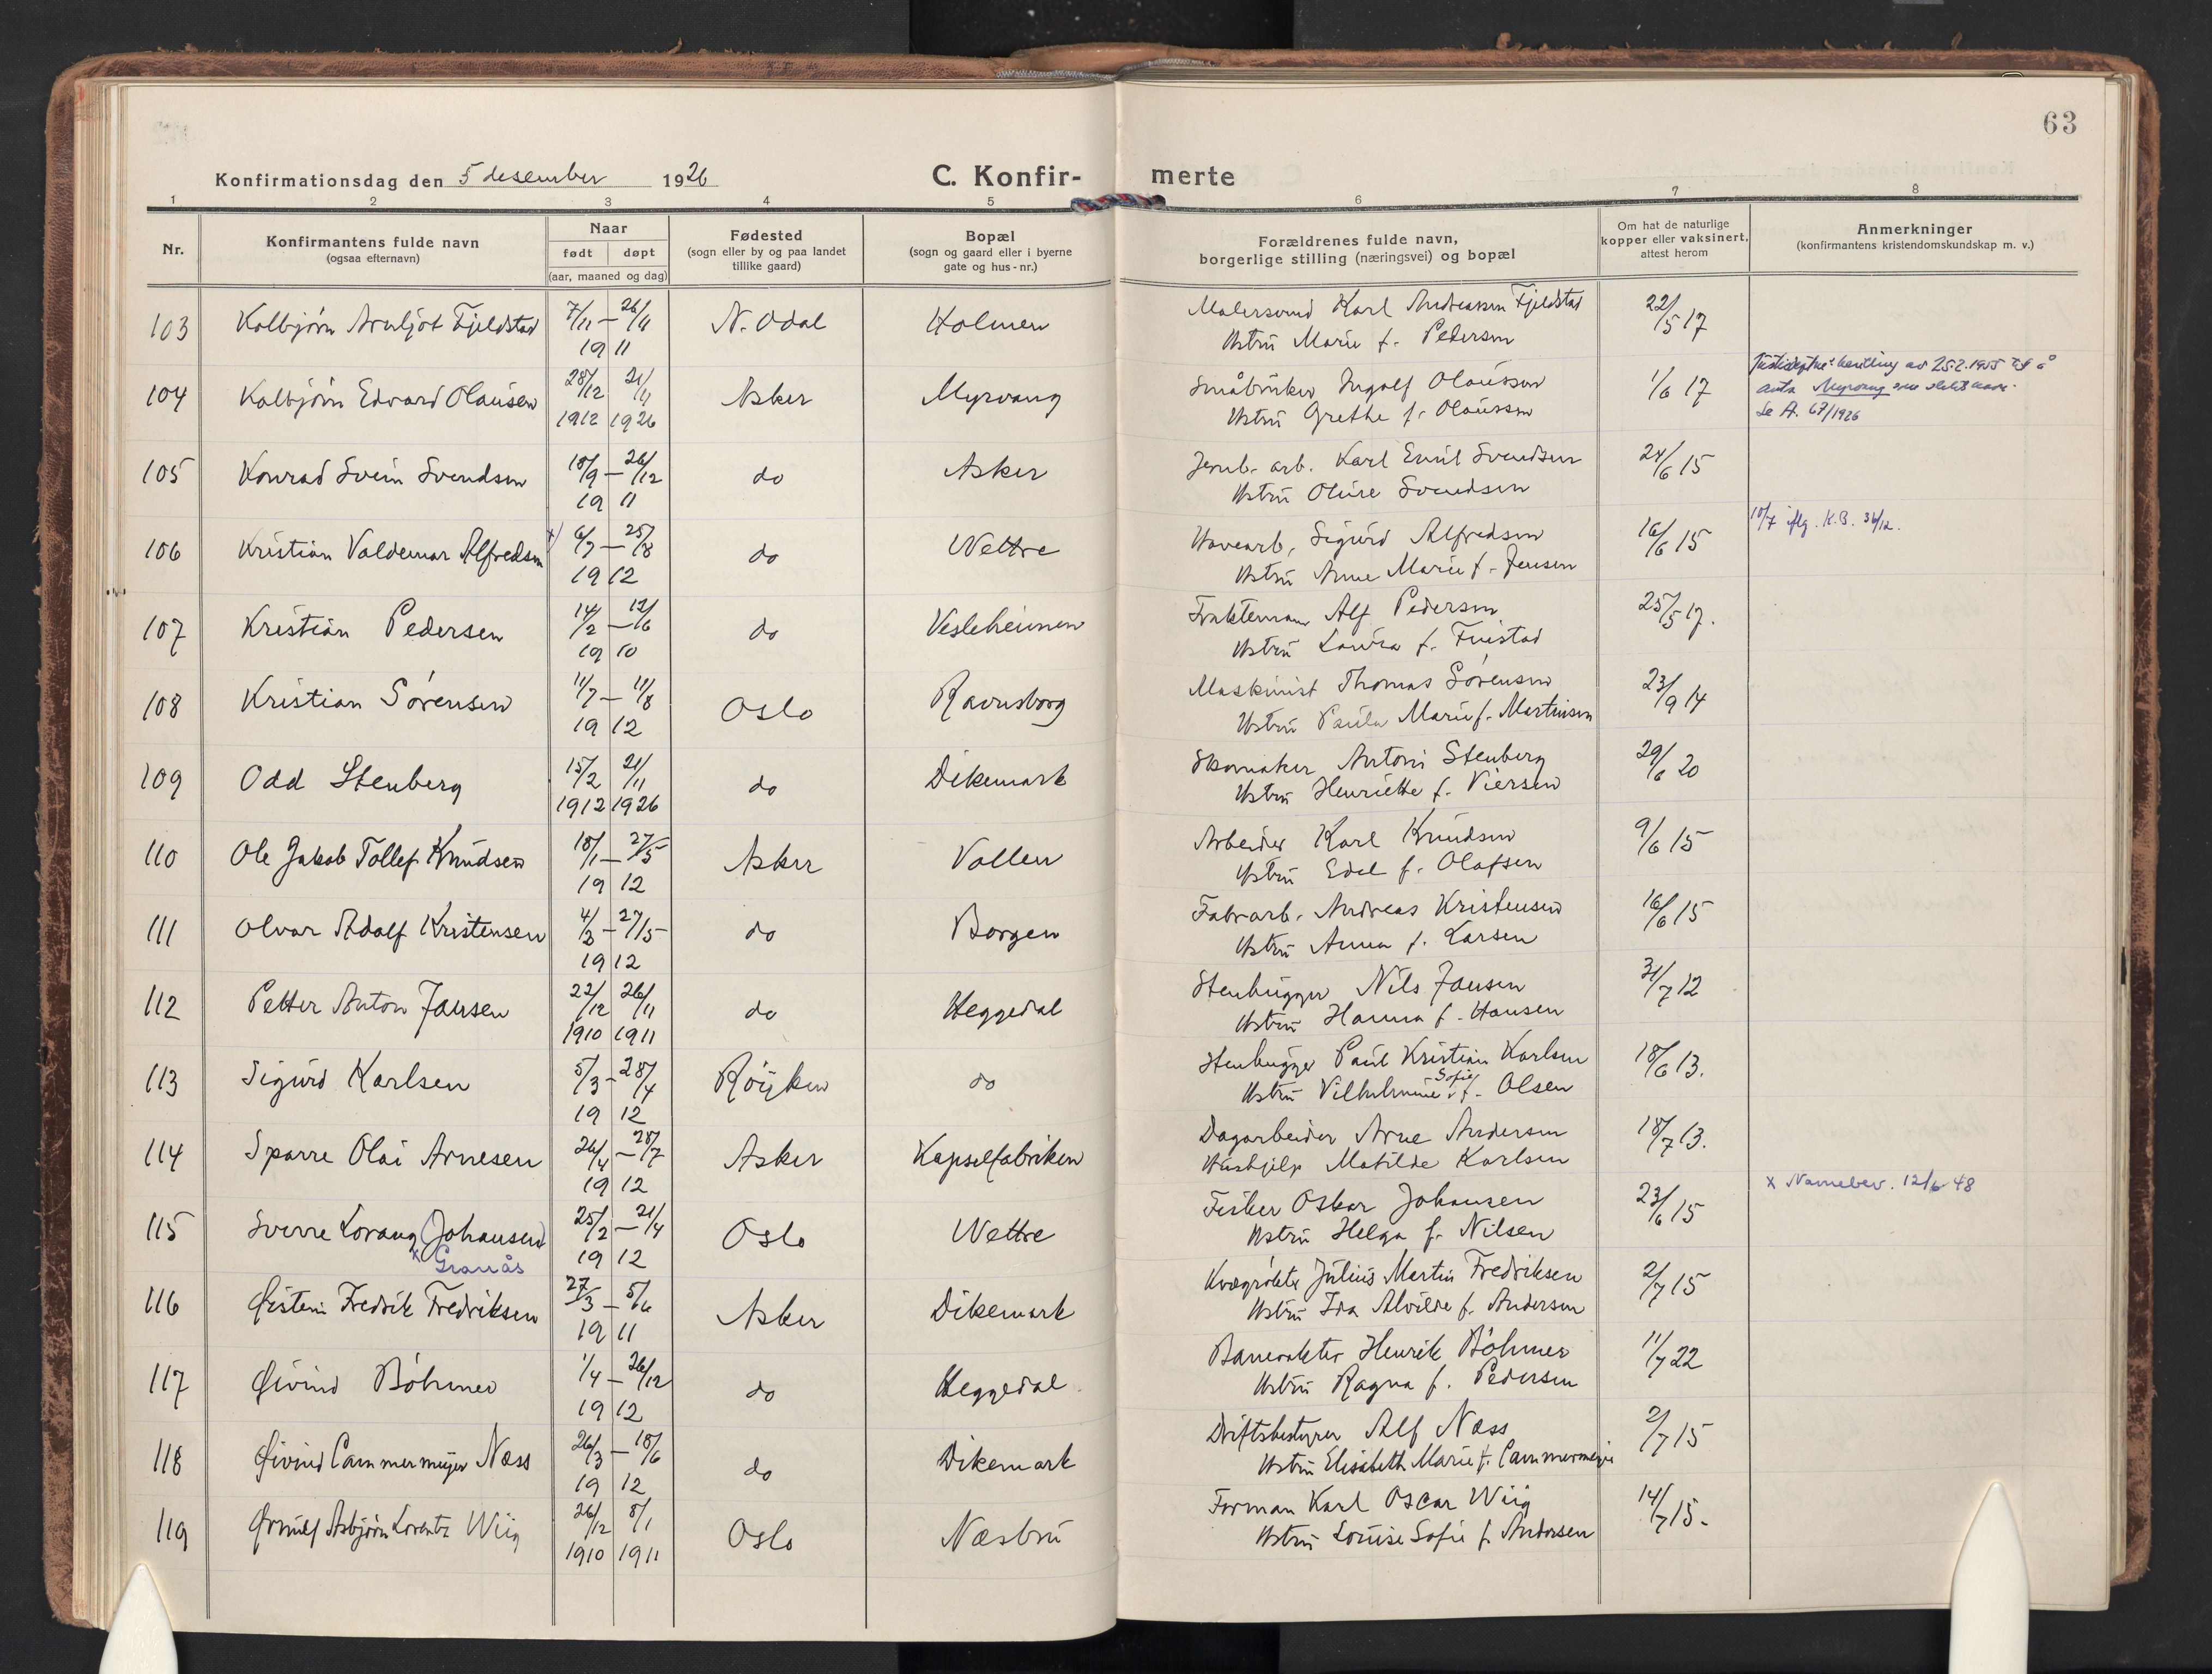 63
Konfirmationsdag den 5 desember 1926
C. Konfir-
merte
1 2 3 4 5 6 7 8
Nr.
Konfirmantens fulde navn
(ogsaa efternavn)
Naar
født døpt
(aar, maaned og dag)
Fødested
(sogn eller by og paa landet
tillike gaard)
Bopæl
(sogn og gaard eller i byerne
gate og hus-nr.)
Forældrenes fulde navn,
borgerlige stilling (næringsvei) og bopæl
Om hat de naturlige
kopper eller vaksinert,
attest herom
Anmerkninger
(konfirmantens kristendomskundskap m. v.)
103 Kolbjørn Arnljot Fjeldstad 7/11 – 26/11 N. Odal Holmen Malersvend Karl Andreassen Fjeldstad 22/5 17
19 11 Hstru Marie f. Pedersen
104 Kolbjörn Edvard Olausen 28/12 21/11 Asker Myrvang Småbruker Ingolf Olaussen 1/6 17
1912 1926 Hstru Grethe f. Olaussen
av 25.2.1955 å
anta Myrvang
Se A. 67/1926
105 Konrad Svein Svendsen 18/9 – 26/12 do Asker Jernb. arb. Karl Emil Svendsen 24/6 15
19 11 Hstru Oline Svendsen
106 Kristian Valdemar Alfredsen x) 6/7 – 25/8 do Wettre Havearb. Sigurd Alfredsen 16/6 15 10/7 iflg. K.B.
19 12 Hstru Anne Marie f. Jensen
107 Kristian Pedersen 14/2 – 12/6 do Vesleheimen Fraktemann Alf Pedersen 25/5 17.
19 10 Hstru Laura f.
108 Kristian Sørensen 11/7 – 11/8 Oslo Ravnsborg Maskinist Thomas Sørensen 23/9 14
19 12 Hstru Paula Marie f. Martinsen
109 Odd Stenberg 15/2 21/11 do Dikemark Skomaker Antoni Stenberg 29/6 20
1912 1926 Hstru Henriette f. Viersen
110 Ole Jakob Tollef Knudsen 18/1 – 27/5 Asker Vollen Arbeider Karl Knudsen 9/6 15
19 12 Hstru Edel f. Olafsen
111 Olvar Adolf Kristensen 4/3 – 27/5 do Borgen Fabr arb. Andreas Kristensen 16/6 15
19 12 Hstru Anna f. Larsen
112 Petter Anton Jansen 22/12 26/11 do Heggedal Stenhugger Nils Jansen 31/7 12
1910 1911 Hstru Hanna f. Hansen
113 Sigurd Karlsen 5/3 – 28/4 Röyken do Stenhugger Paul Kristian Karlsen 18/6 13.
19 12 Hstru Vilhelmine Sofie f. Olsen
114 Sparre Olai Arnesen 26/4 – 28/7 Asker Kapselfabriken Dagarbeider Arne Andersen 18/7 13.
19 12 Hushjelp Matilde Karlsen
115 Sverre Lorang (Johansen) 25/2 – 21/4 Oslo Wettre Fisker Oskar Johansen 23/6 15 x Navnebev. 12/6 48
x Granås 19 12 Hstru Helga f. Nilsen
116 Øistein Fredrik Fredriksen 27/3 – 5/6 Asker Dikemark Kvægrökter Julius Martin Fredriksen 2/7 15
19 11 Hstru Ida Alvilde f. Andersen
117 Øivind Böhmer 1/4 – 26/12 do Heggedal Banevokter Henrik Böhmer 11/7 22
19 12 Hstru Ragna f. Pedersen
118 Øivind Cammermeyer Næss 26/3 – 18/6 do Dikemark Driftsbestyrer Alf Næss 2/7 15
19 12 Hstru Elisabeth Marie f. Cammermeyer
119 Ørnulf Asbjörn Lorentz Wiig 26/12 8/1 Oslo Næsbru Forman Karl Oscar Wiig 14/7 15.
1910 1911 Hstru Louise Sofie f. Andersen